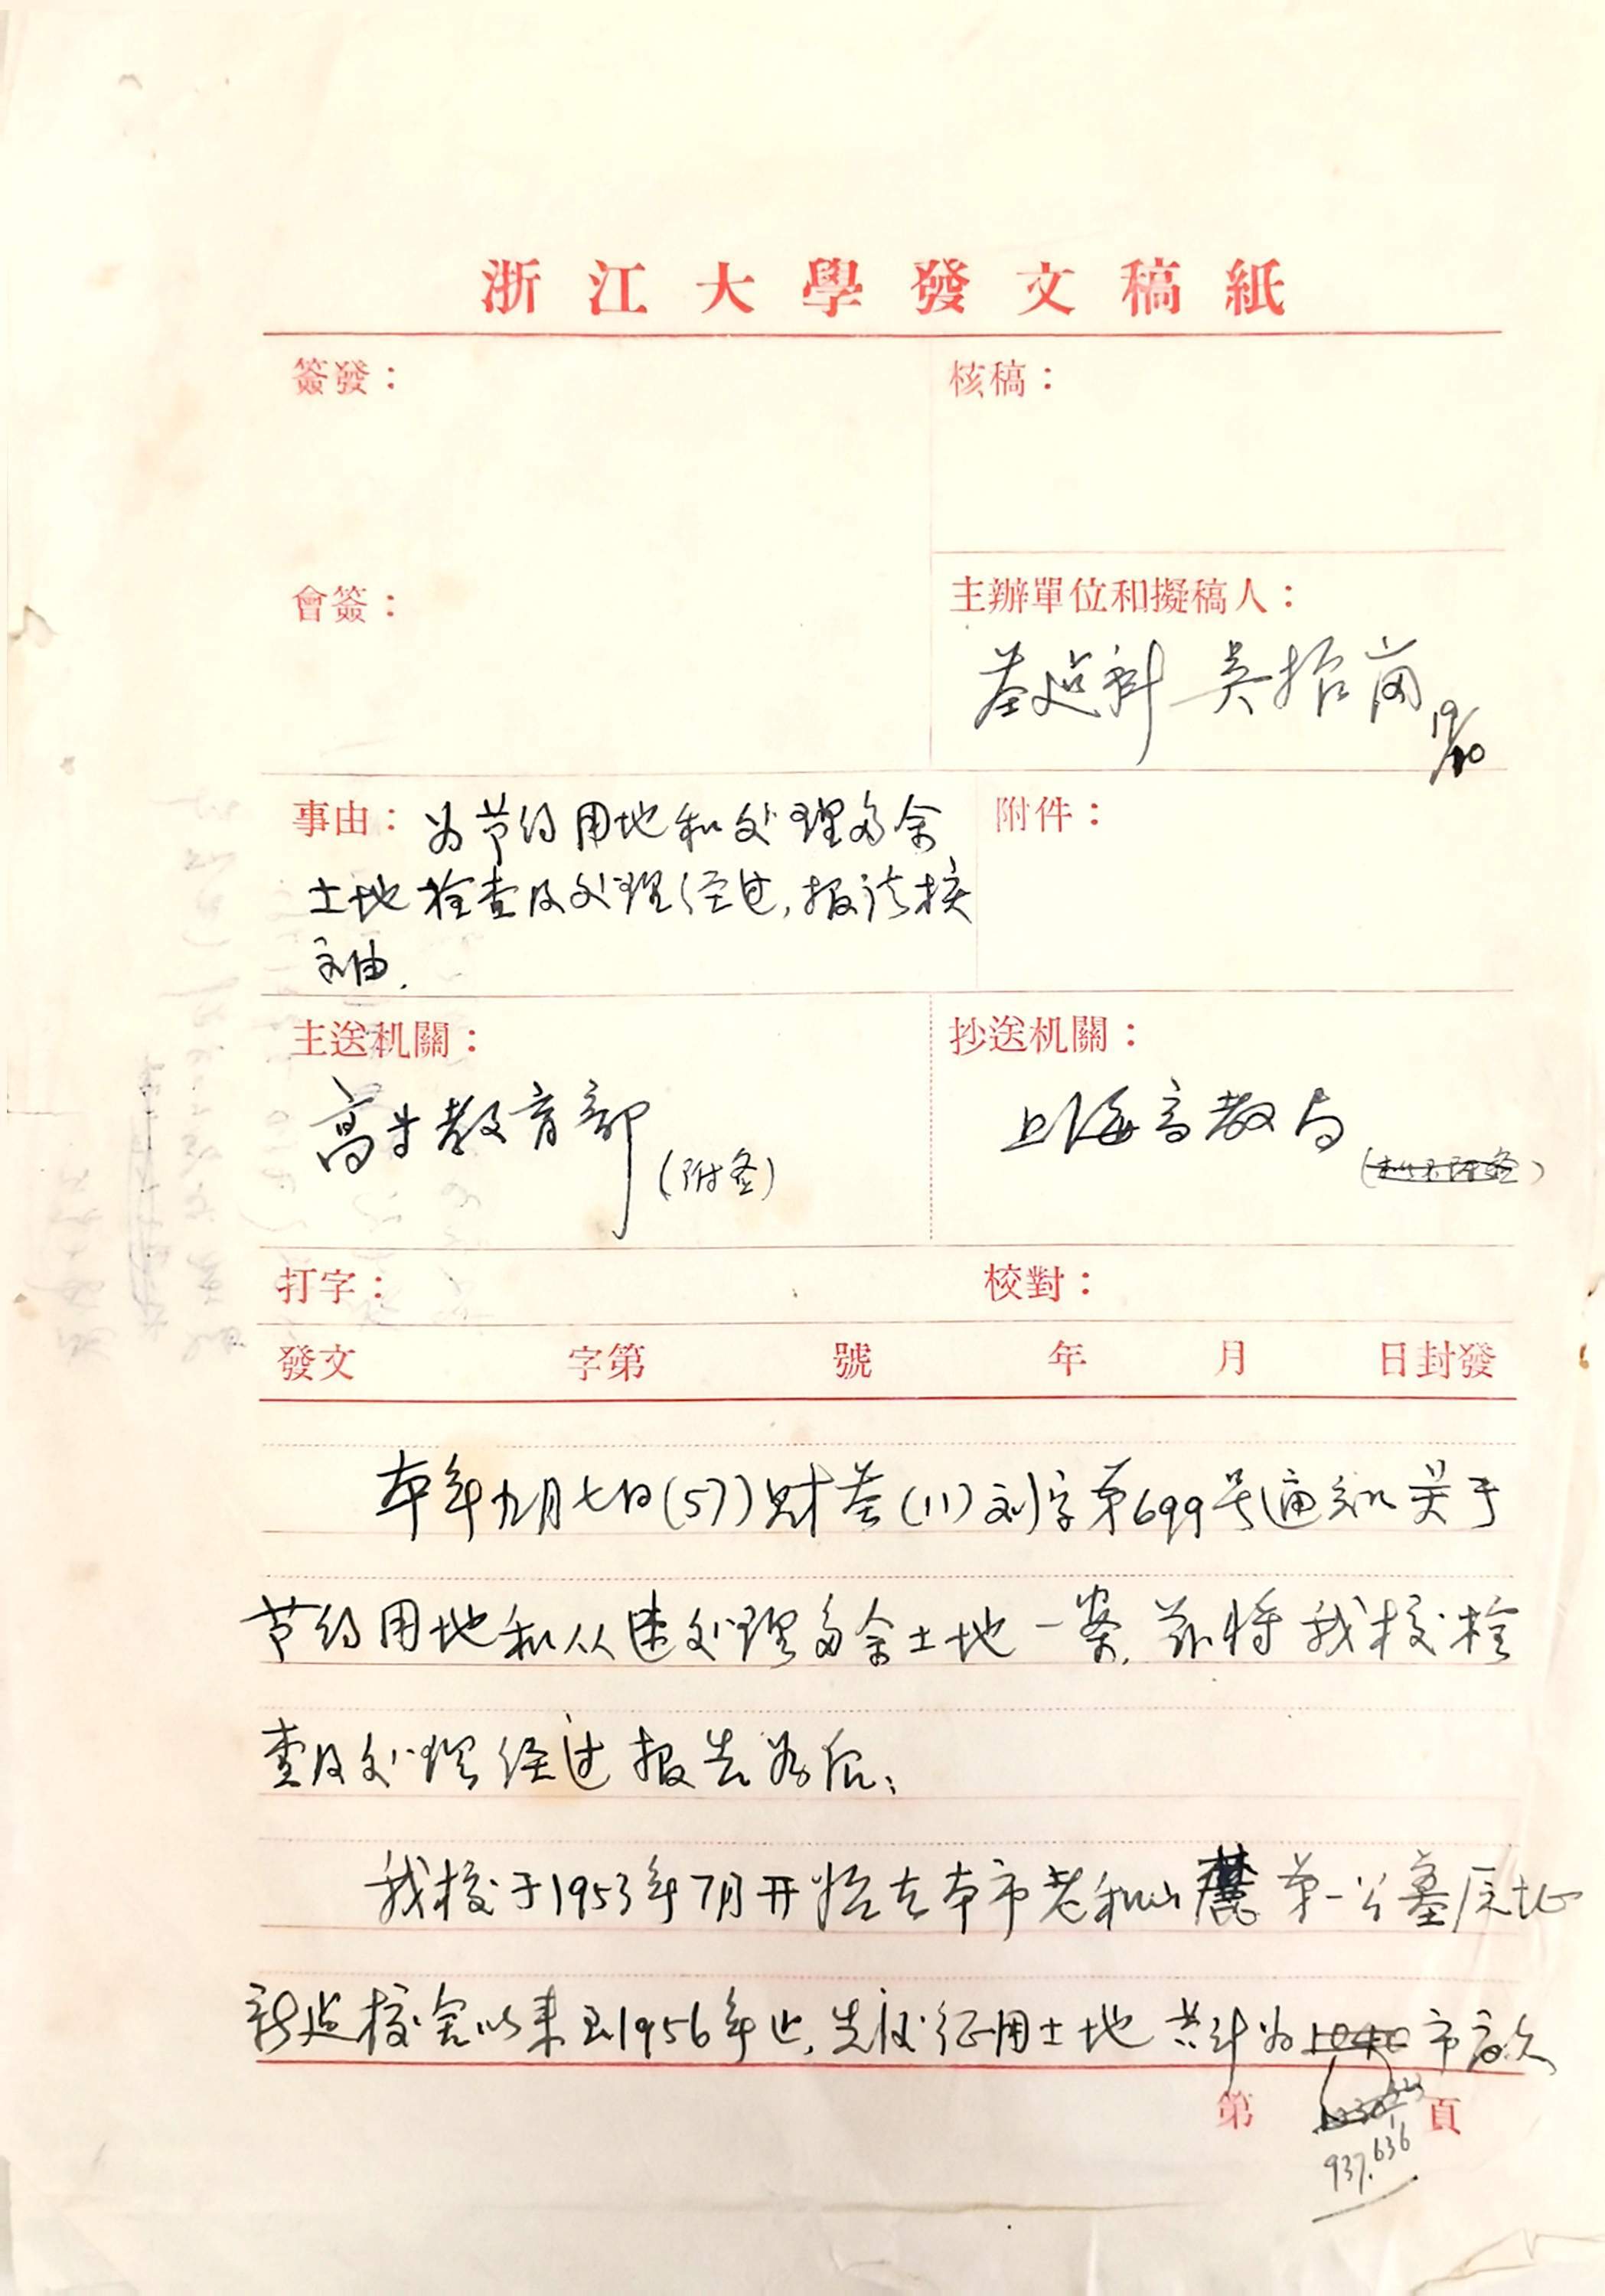 浙江大學發文稿紙
簽發：
核稿：
會簽：
主辦單位和擬稿人：
基建科 吴
19/10
事由：为节约用地和处理多余
土地检查及处理经过，报请核
由．
附件：
主送机關：
高等教育部（附卷）
抄送机關：
上海高教局
打字：
校對：
發文 字第 號 年 月 日封發
本年九月七日(57)财基(11)刘字第699号通知关于
节约用地和从速处理多余土地一案，兹将我校检
查及处理经过报告如后：
我校于1953年7月开始在本市老和山麓第一公墓原地
新建校舍以来至1956年止，先后征用土地共计为1040市亩
第 頁
937.636